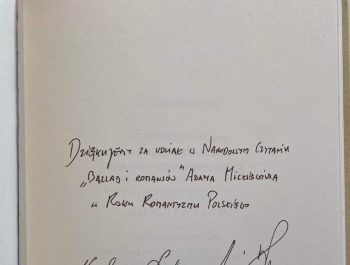 Dziękujemy za udział w Narodowym Czytaniu
„Ballad i romansów" Adama Mickiewicza
w Roku Romantyzmu Polskiego